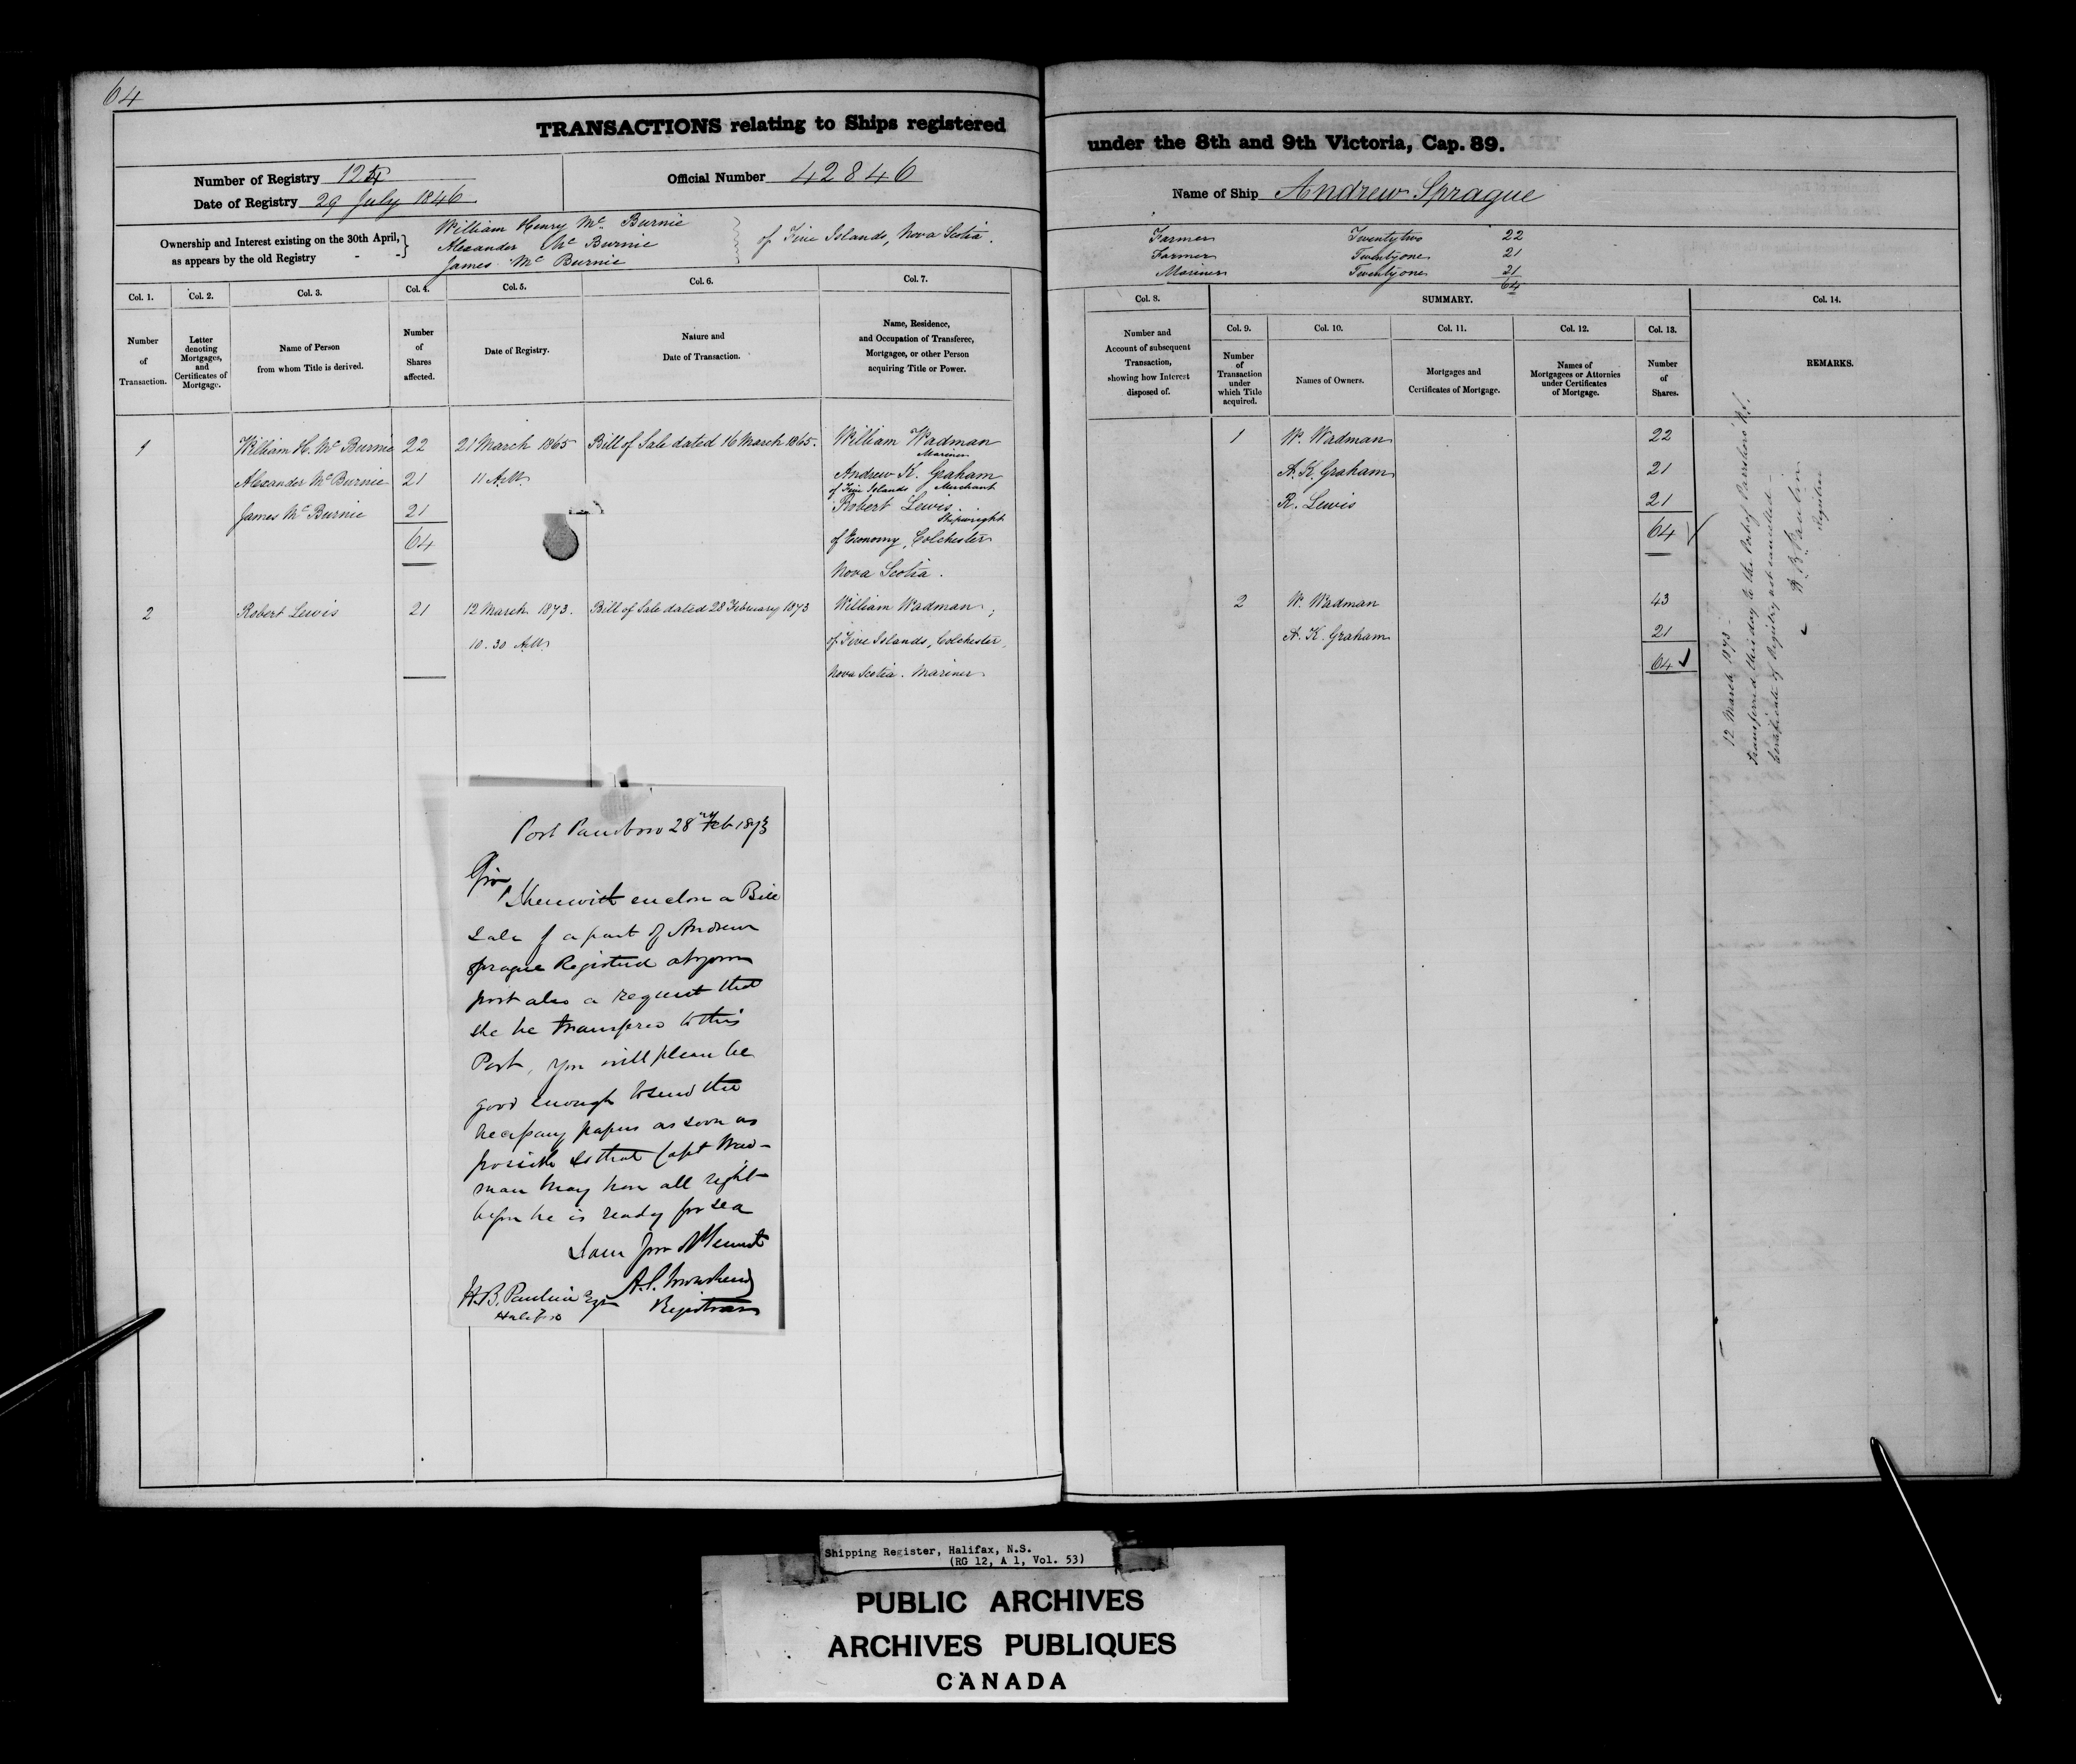 64
TRANSACTIONS relating to Ships registered
under the 8th and 9th Victoria, Cap. 89.
Number of Registry 124
Official Number 42846
Date of Registry 29 July 1846
Name of Ship Andrew Sprague
Ownership and Interest existing on the 30th April,
as appears by the old Registry - -
William Henry Mc Burnie
Alexander Mc Burnie
James Mc Burnie
of Five Islands, Nova Scotia.
Farmer Twenty two 22
Farmer Twenty one 21
Mariner Twenty one 21
64
Col. 1. Col. 2. Col. 3. Col. 4. Col. 5. Col. 6. Col. 7.
Number
of
Transaction.
Letter
denoting
Mortgages,
and
Certificates of
Mortgage.
Name of Person
from whom Title is derived.
Number
of
Shares
affected.
Date of Registry.
Nature and
Date of Transaction.
Name, Residence,
and Occupation of Transferee,
Mortgagee, or other Person
acquiring Title or Power.
1 William H. Mc Burnie 22 21 March 1865 Bill of Sale dated 16 March 1865. William Wadman
Mariner
Alexander Mc Burnie 21 11 A.M. Andrew K. Graham
of Five Islands Merchant
James Mc Burnie 21 Robert Lewis
Shipwright
64 of Economy, Colchester
Nova Scotia.
2 Robert Lewis 21 12 March 1873. Bill of Sale dated 28 February 1873 William Wadman,
10.30 A.M. of Five Islands, Colchester,
Nova Scotia. Mariner
Port Parrsboro 28 Feb 1873
Sir
I herewith enclose a Bill
Sale of a part of Andrew
Sprague Registered at your
port also a request that
she be transfered to this
Port, you will please be
good enough to send the
necessary papers as soon as
possible so that Capt Wad-
man may have all right
before he is ready for sea
I am your Obt Servant
A.S. Townshend
Registrar
H.B. Paulin Esqr
Halifax
Col. 8. SUMMARY. Col. 14.
Number and
Account of subsequent
Transaction,
showing how Interest
disposed of.
Col. 9. Col. 10. Col. 11. Col. 12. Col. 13.
Number
of
Transaction
under
which Title
acquired.
Names of Owners.
Mortgages and
Certificates of Mortgage.
Names of
Mortgagees or Attornies
under Certificates
of Mortgage.
Number
of
Shares.
REMARKS.
1 W. Wadman 22
A. K. Graham 21
R. Lewis 21
64
2 W. Wadman 43
A. K. Graham 21
64
12 March 1873 -
Transferred this day to the Port of Parrsboro N.S.
Certificate of Registry not cancelled -
H. B. Paulin
Registrar
Shipping Register, Halifax, N.S.
(RG 12, A 1, Vol. 53)
PUBLIC ARCHIVES
ARCHIVES PUBLIQUES
CANADA